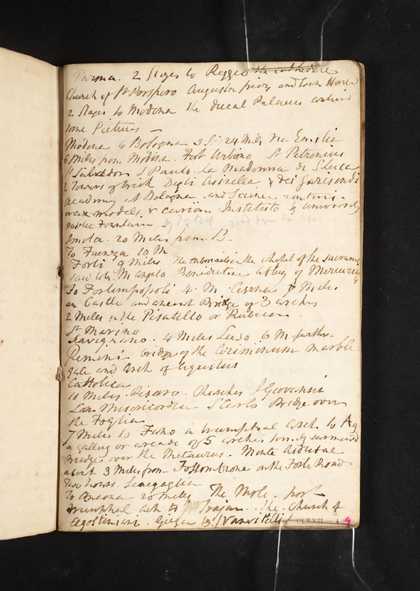 Parma. 2 Stages to Reggio the Cathedral
Church of St Prospero Augustin and Town House
2 Stages to Modena the Ducal Palace
some Pictures –
Modena to Bologna 3 24 Miles Via Emilia
6 Miles from Modena. Fort Urbano St Petronius
St Salvador St Paulo La Madonna di St Lucca
2 Towers of Brick Degli Asinelli & dei Garisendi
Academy at Bologna and Science
wax models, & curious Institute & University
public Fountain
Imola. 20 Miles from B.
To Faenza 10 M
Forli 9 Miles the Chapel of the
Benedictine Abbey of Mercurio
To Forlimpopoli 4 M. Cesena 7 Miles
an Castle and ancient Bridge of 3 arches
2 Miles is the Pisatello or Rubicon
St Marino
Savignano. 4 Miles 6 M further
Rimini bridge of the Ceriminum marble
gate and Arch of Augustus
Cattolica
10 Miles Pesaro. Churches St Giovanni
La Misericordia St Carlo Bridge over
the Foglia
7 Miles to Fano a triumphal Arch to
a gallery or arcade of 5 arches
Bridge over the Metaurus. Monte
about 3 Miles from Fossombrone on the Road
Senegaglia
To Ancona 20 Miles The Mole. port
Triumphal Arch to Trajan. The Church of
Agostiniani. by Vanvitelli